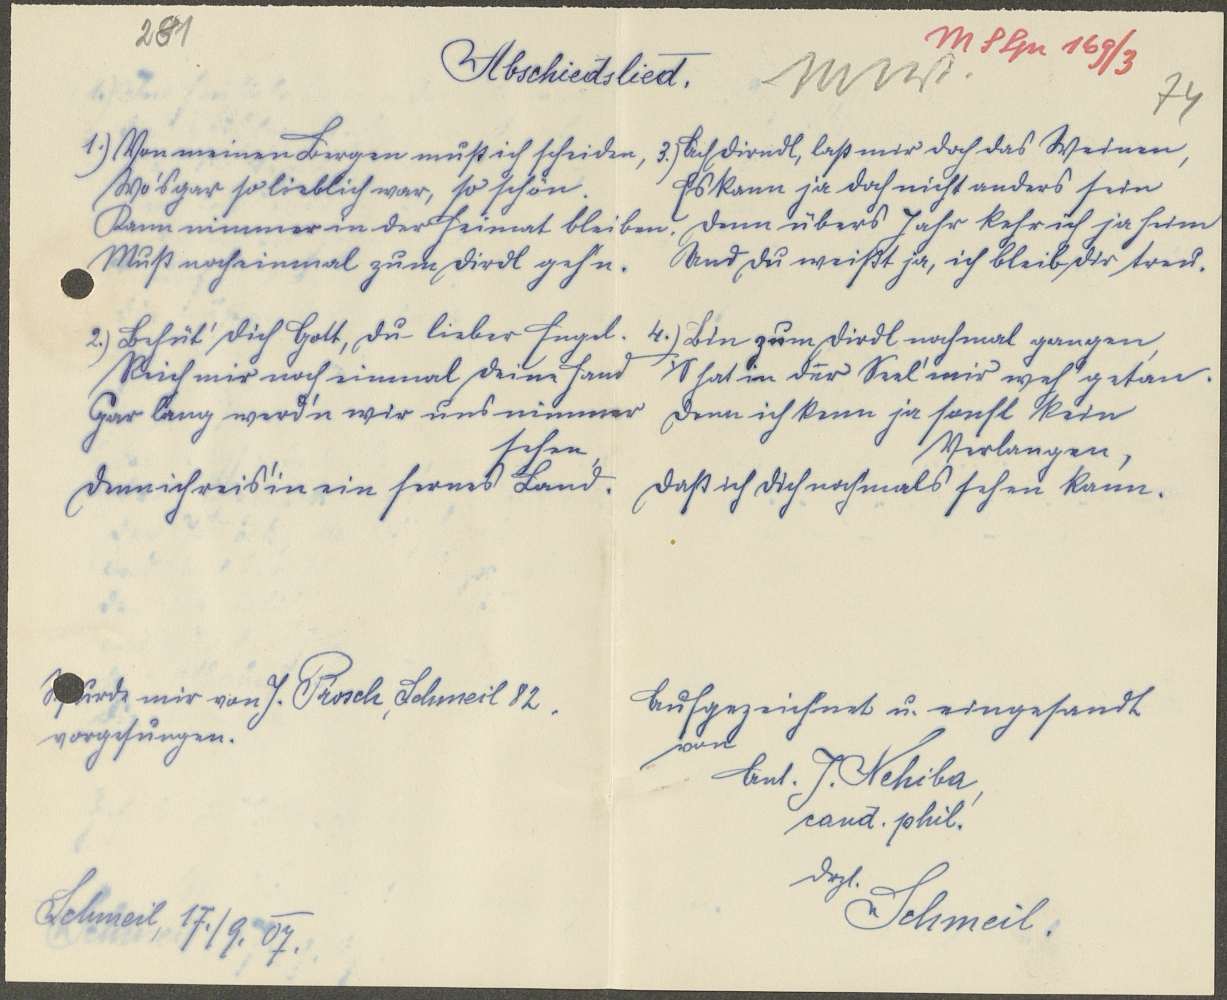 281
Abschiedslied.
M S Gn 169/3
74
1.) Von meinen Bergen muß ich scheiden,
Wo's gar so lieblich war, so schön.
Kann nimmer in der Heimat bleiben.
Muß noch einmal zum Dirdl geh'n.
2.) Behüt' dich Gott, du lieber Engel.
Reich mir noch einmal deine Hand
Gar lang werd'n wir uns nimmer
sehen,
Denn ich reis' in ein fernes Land.
3.) Ach Dirndl, laß mir doch das Weinen,
Es kann ja doch nicht anders sein
Denn übers Jahr kehr ich ja heim
Und du weißt ja, ich bleib dir treu.
4.) Bin zum Dirdl nochmal gangen,
'S hat in der Seel' mir weh' getan.
Denn ich kenn ja sonst kein
Verlangen,
Daß ich dich nochmals sehen kann.
Wurde mir von J. Prosch, Schmeil 82
vorgesungen.
Schmeil, 17./9. 07.
Aufgezeichnet u. eingesandt
von
Ant. J. Nehiba,
cand. phil.
Schmeil.